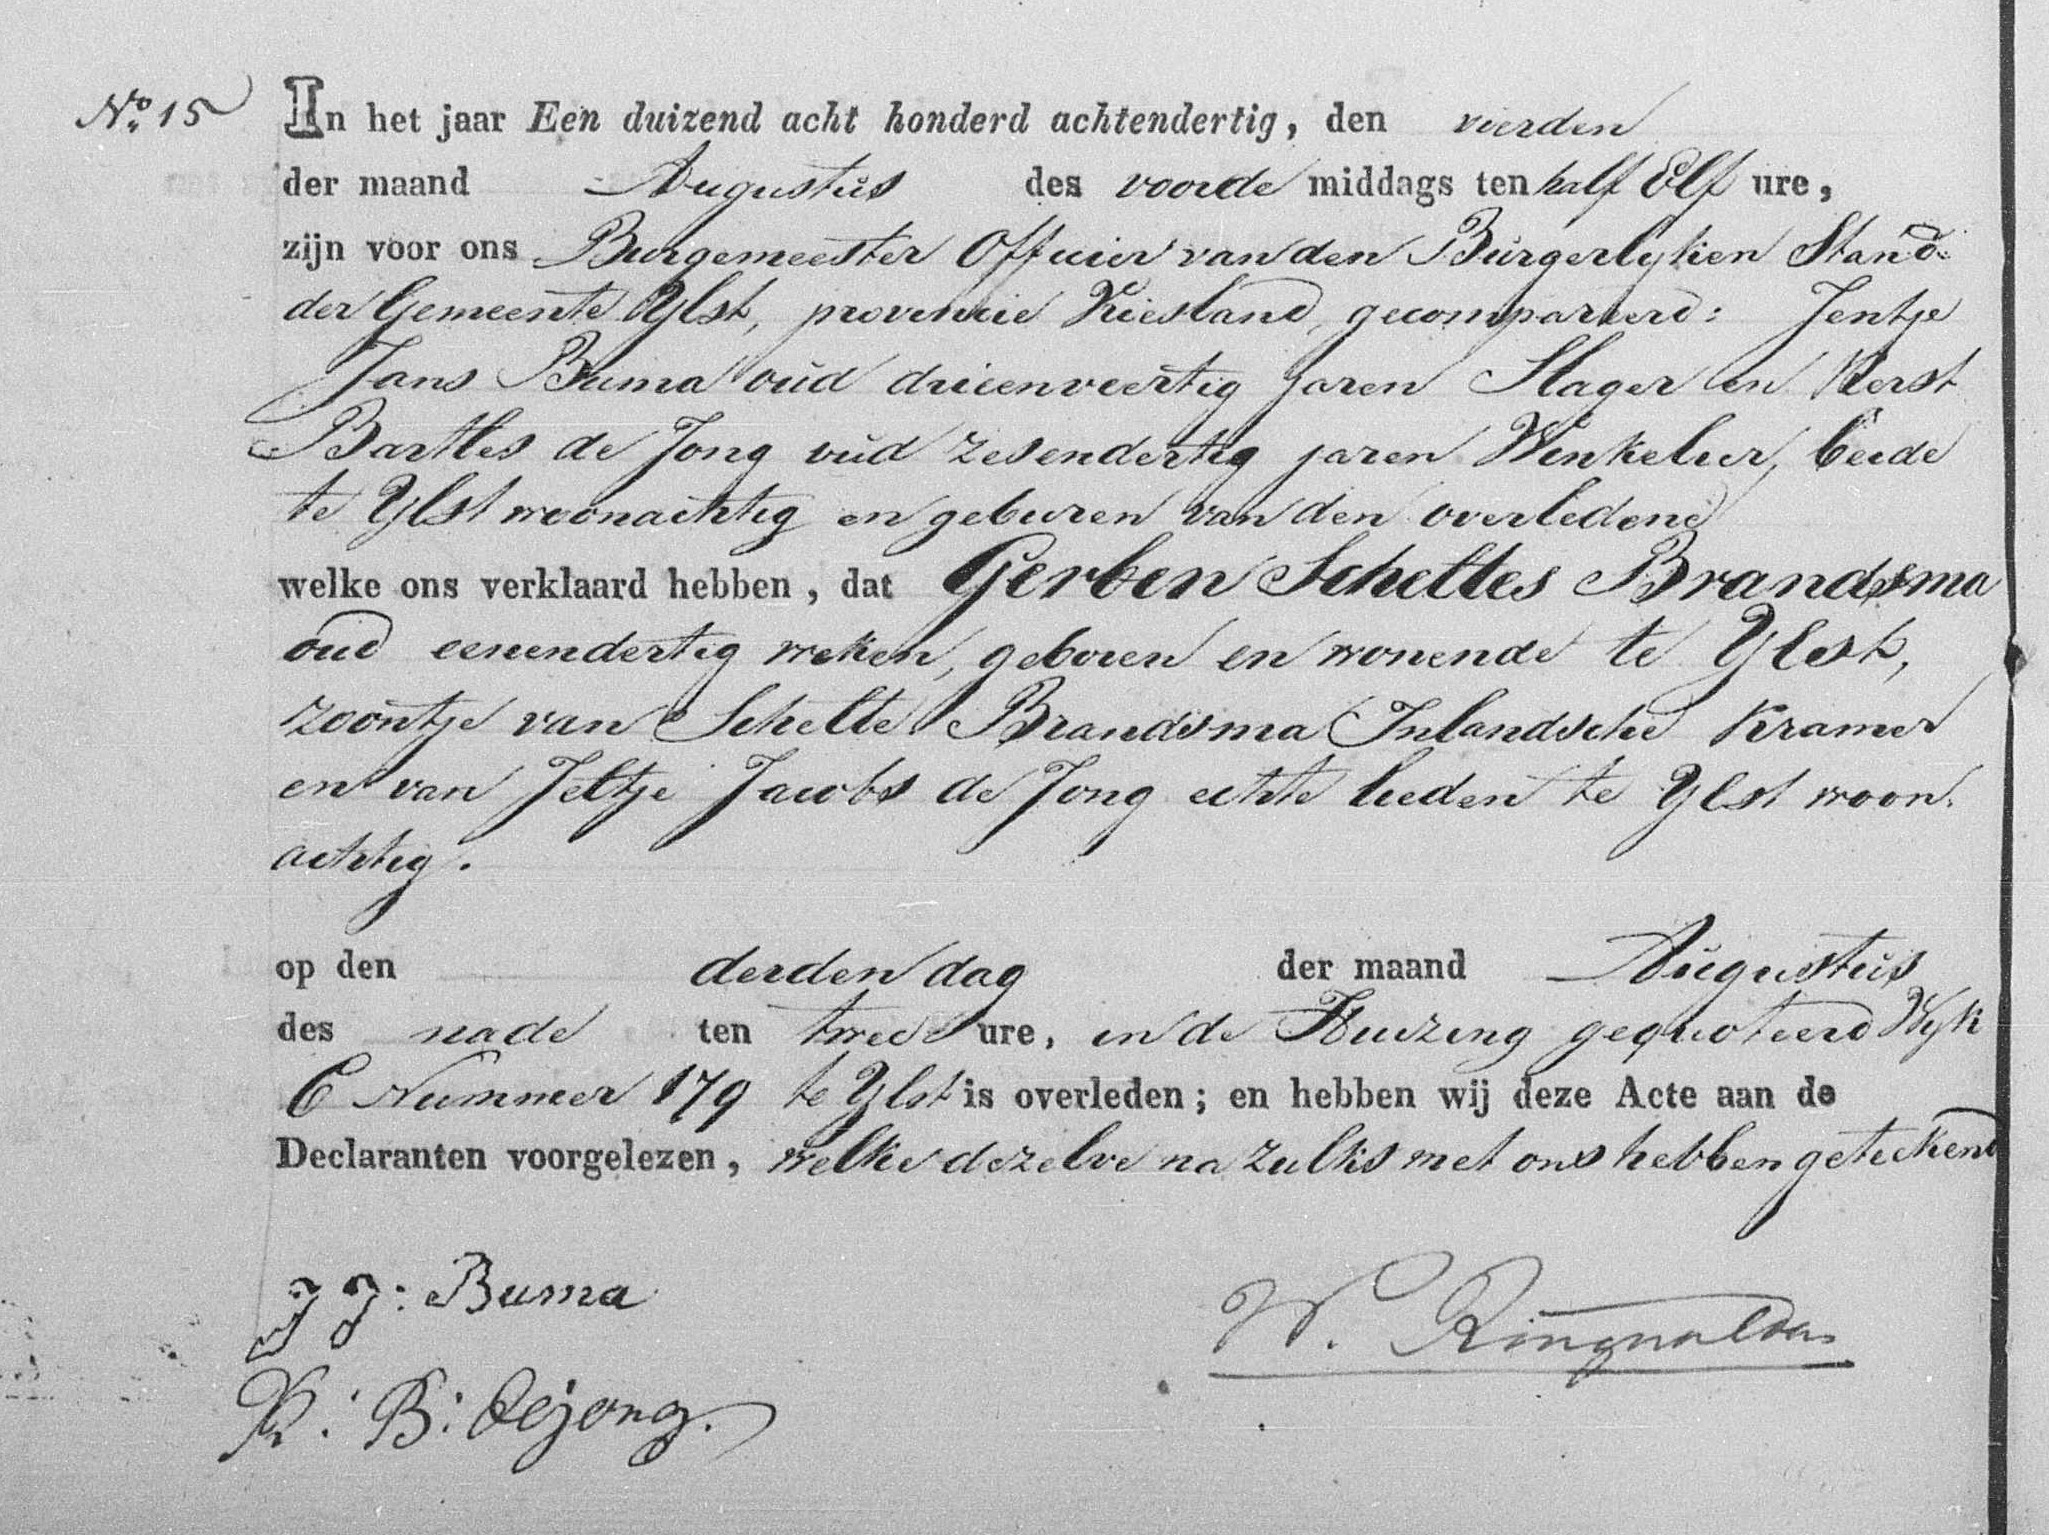 No. 15
In het jaar Een duizend acht honderd achtendertig, den vierden
der maand Augustus des voorde middags ten half Elf ure,
zijn voor ons Burgemeester Officier van den Burgerlyken Stand
der Gemeente Ylst, provincie Vriesland, gecompareerd: Jentje
Jans Buma oud drieenveertig jaren Slager en Kerst
Bartles de Jong oud zesendertig jaren Winkelier, beide
te Ylst woonachtig en geburen van den overledene
welke ons verklaard hebben, dat Gerben Scheltes Brandsma
oud eenendertig weken, geboren en wonende te Ylst,
zoontje van Schelte Brandsma Inlandsche Kramer
en van Jeltje Jacobs de Jong echte lieden te Ylst woon-
achtig.
op den derden dag der maand Augustus
des nade ten twee ure, in de Huizing gequoteerd Wyk
C Nummer 179 te Ylst is overleden; en hebben wij deze Acte aan de
Declaranten voorgelezen, welke dezelve na zulks met ons hebben geteekend
J J: Buma
W. Ringnalda
K: B: de jong.